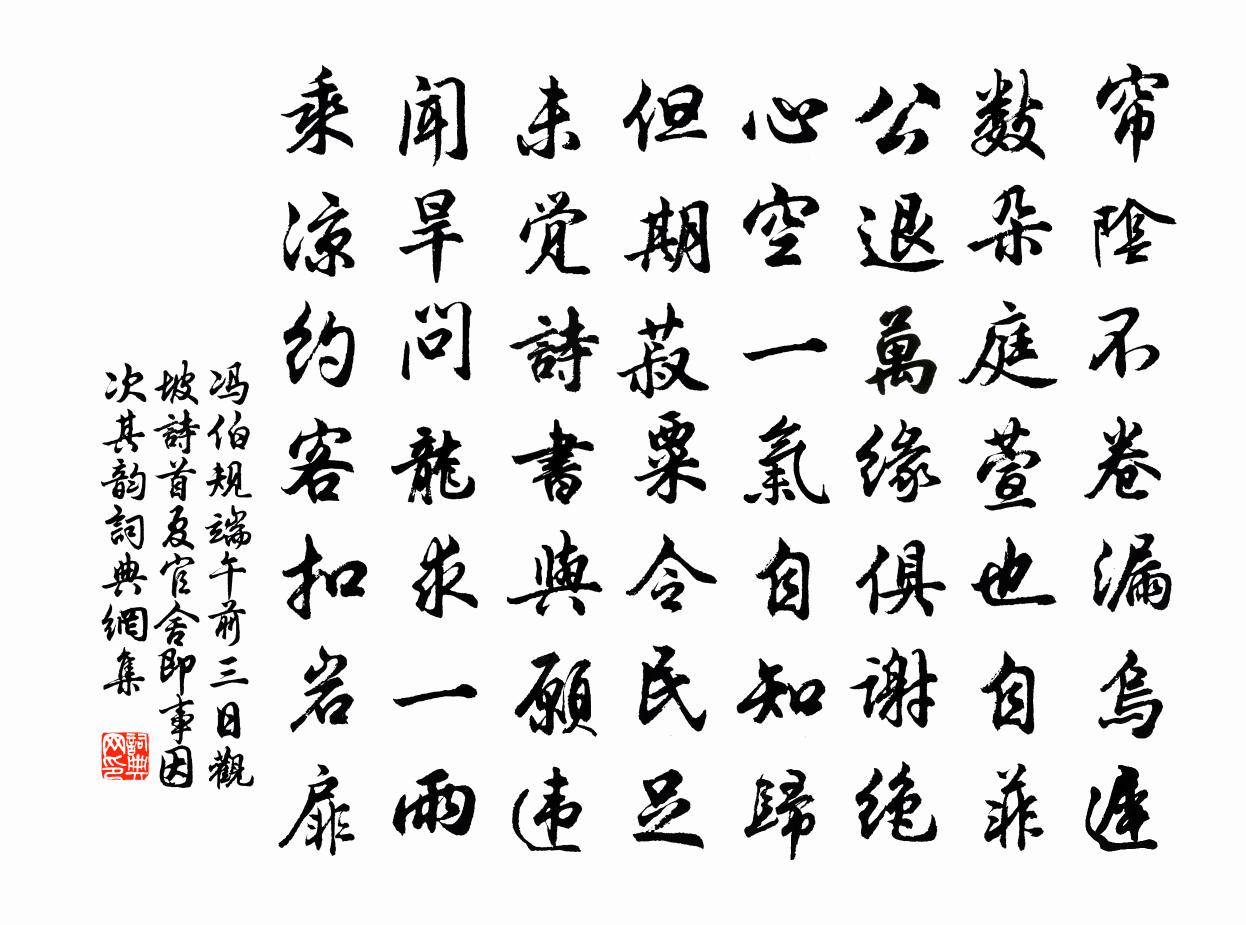 帘陰不卷漏烏遲
數朵庭萱也自菲
公退萬緣俱謝绝
心空一氣自知歸
但期菽粟令民足
未觉詩書與願违
聞旱問龍求一雨
乘凉约客扣岩扉
冯伯規端午前三日觀
坡詩首夏官舍即事因
次其韵詞典網集
詞典网印